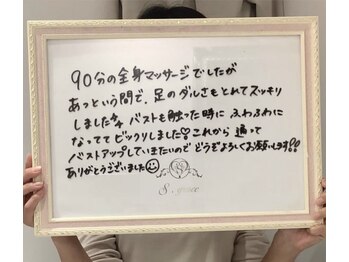 90分の全身マッサージでしたが
あっという間で、足のダルさもとれてスッキリ
しました✨ バストも触った時に ふわふわに
なっててビックリしました♡ これから 通って
バストアップしていきたいので どうぞよろしくお願いします!!
ありがとうございました☺